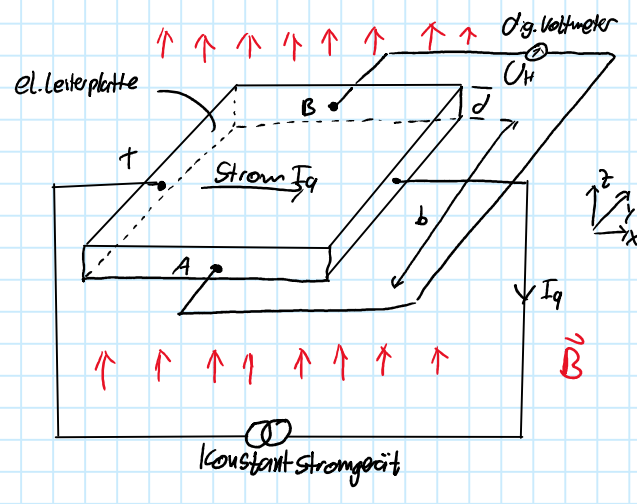 dig. Voltmeter
U_H
el. Leiterplatte
B
d
+
Strom I_q
b
z
y
x
A
I_q
B⃗
Konstantstromgerät